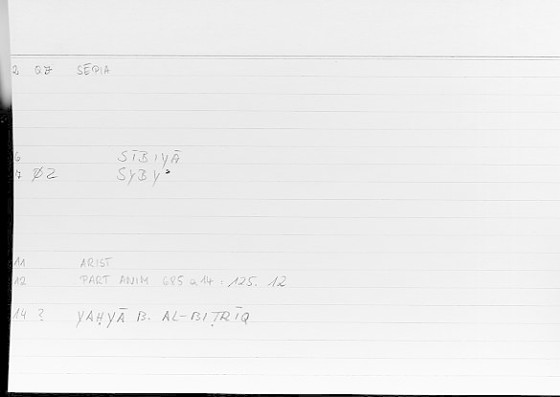 2 07 SĒPIA
6 SĪBIYĀ
7 ØZ SYBYʾ
11 ARIST
12 PART ANIM 685 a 14 : 125. 12
14 ? YAḤYĀ B. AL-BIṬRĪQ